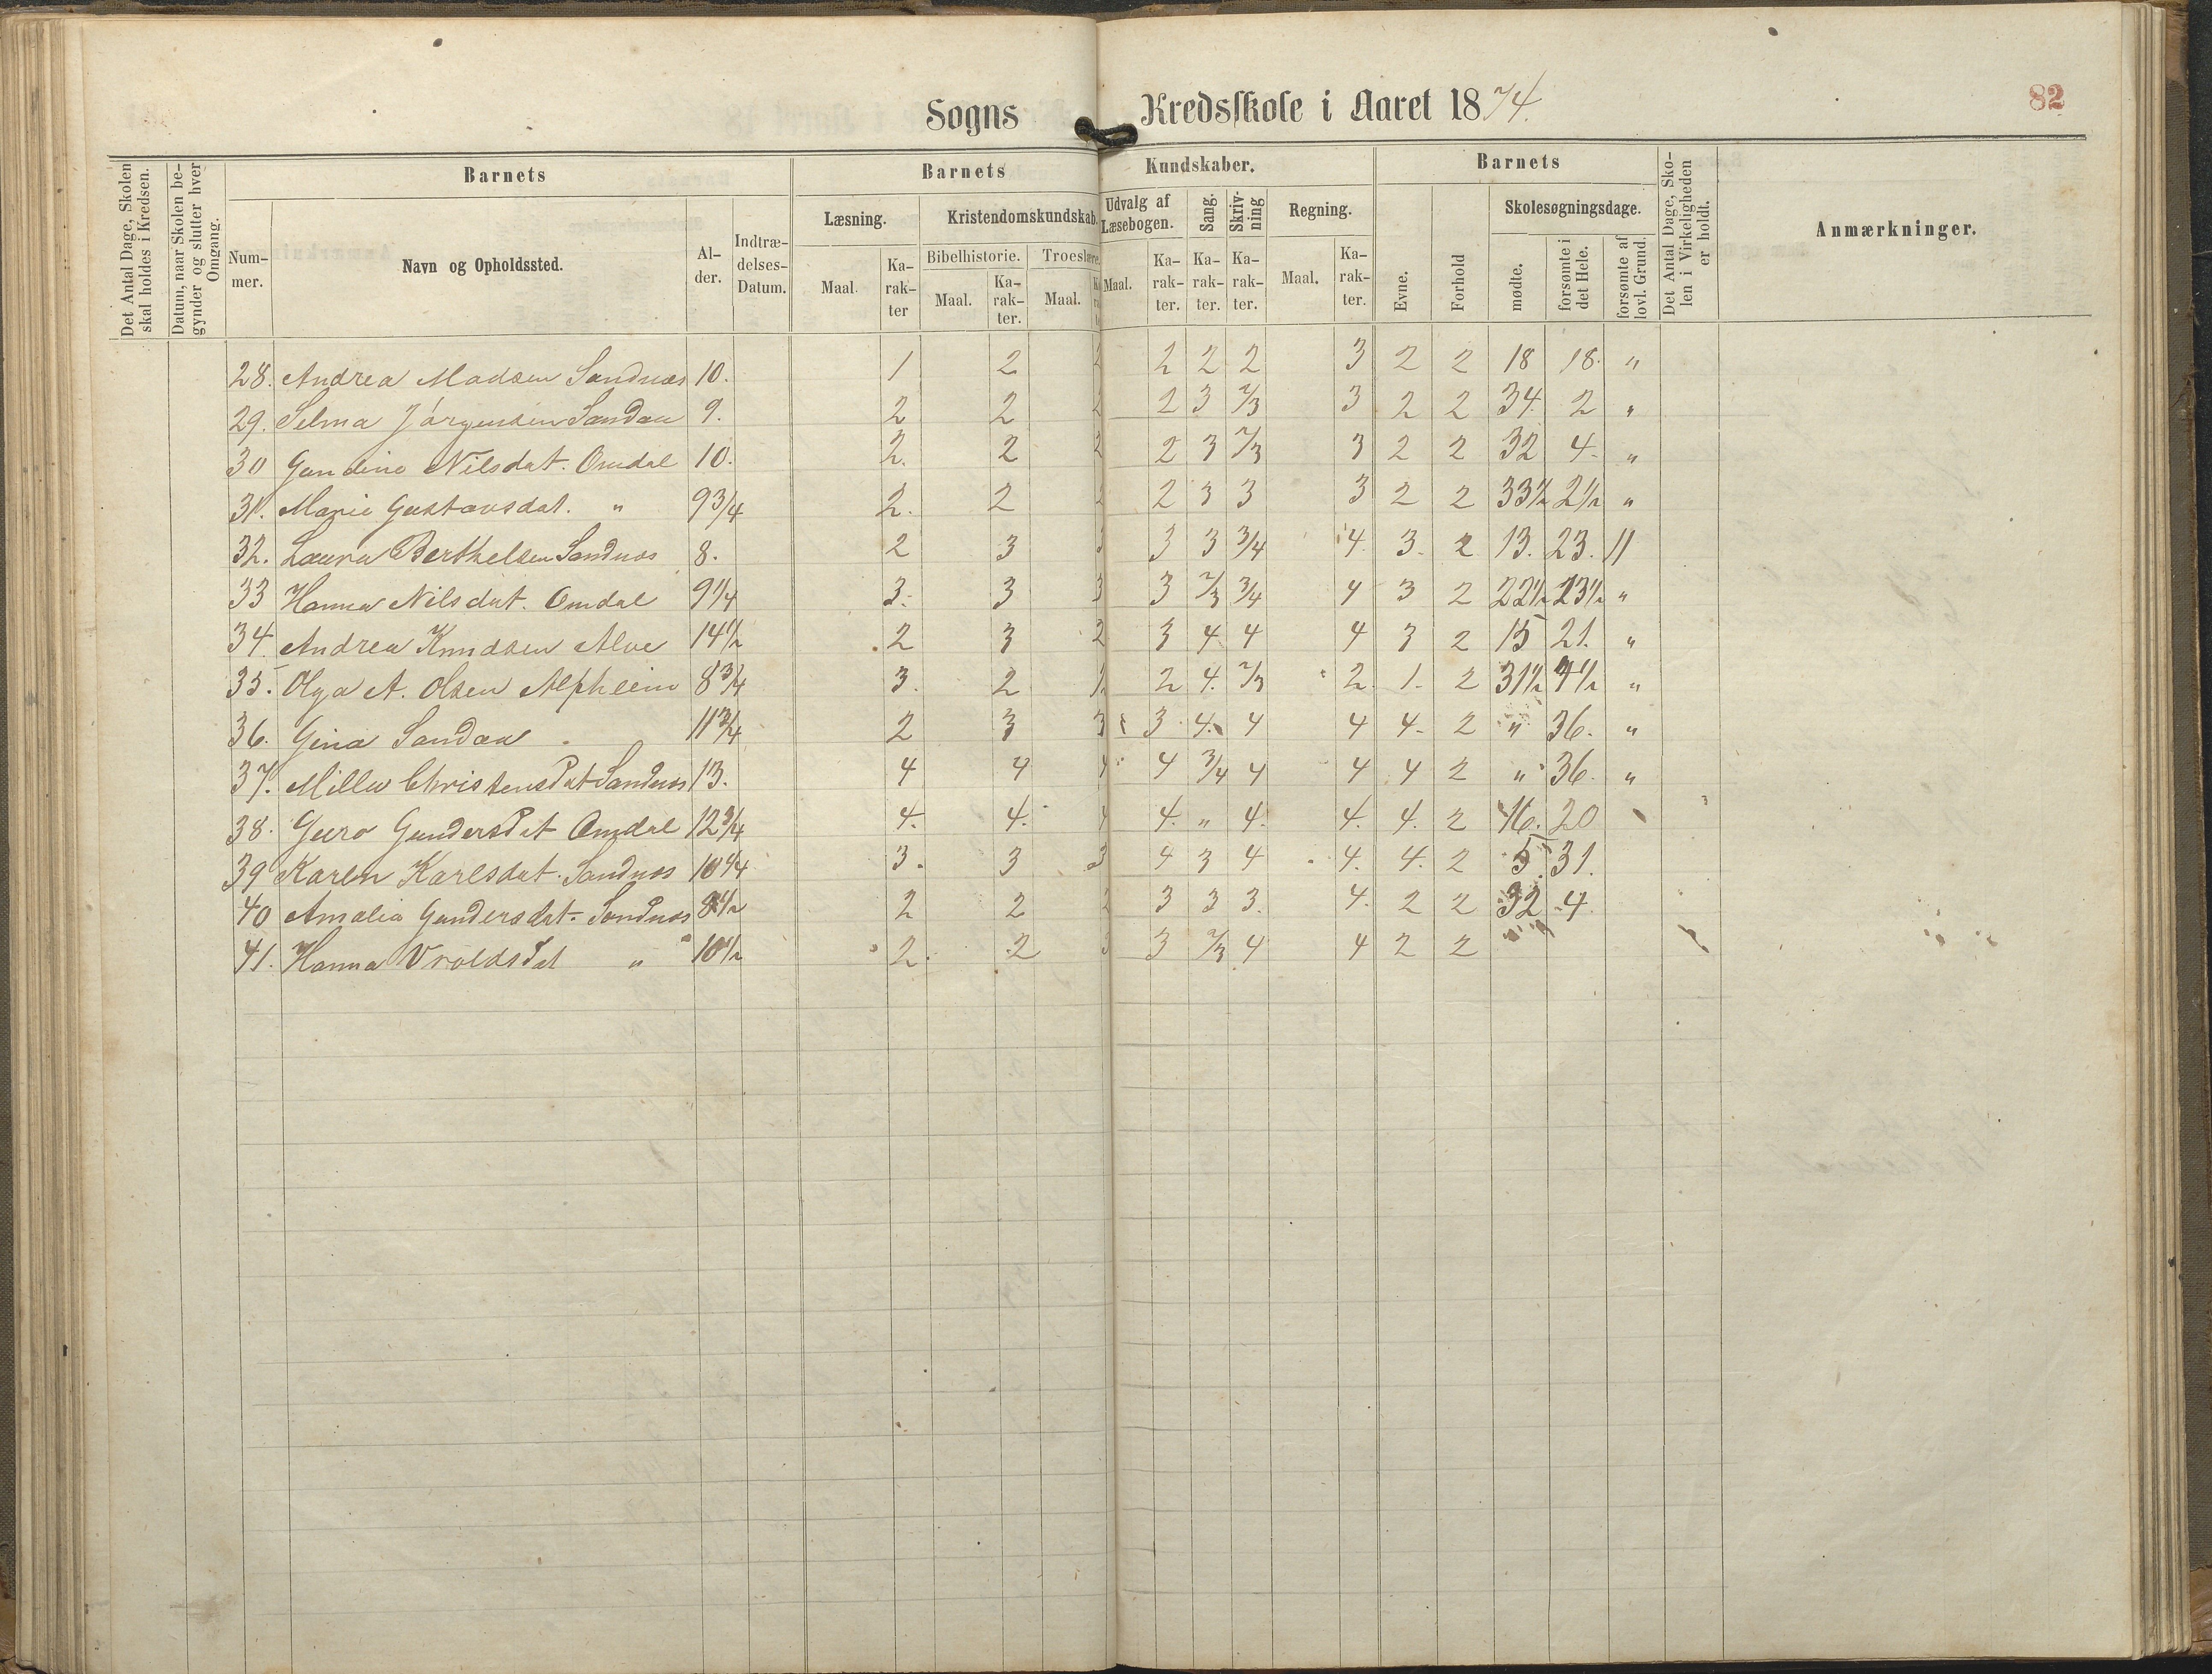 Sogns Kredsskole i Aaret 1874.
82
Det Antal Dage, Skolen skal holdes i Kredsen.
Datum, naar Skolen begynder og slutter hver Omgang.
Barnets
Nummer.
Navn og Opholdssted.
Alder.
Indtrædelses-Datum.
Barnets Kundskaber.
Læsning.
Maal.
Karakter
Kristendomskundskab.
Bibelhistorie.
Maal.
Karakter.
Troeslære.
Maal.
Udvalg af Læsebogen.
Maal.
Karakter.
Sang.
Karakter.
Skrivning
Karakter.
Regning.
Maal.
Karakter.
Barnets
Evne.
Forhold
Skolesøgningsdage.
mødte.
forsømte i det Hele.
forsømte af lovl. Grund.
Det Antal Dage, Skolen i Virkeligheden er holdt.
Anmærkninger.
28. Andrea Madsen Sandnæs 10. 1 2 2 2 2 2 3 2 2 18 18. "
29. Selma Jörgensen Sandau 9. 2 2 2 2 3 2/3 3 2 2 34 2 "
30 Gundine Nilsdat. Omdal 10. 2. 2 2 2 3 2/3 3 2 2 32 4. "
31. Marie Gustavsdat. " 9 3/4 2. 2 2 2 3 3 3 2 2 33 1/2 2 1/2 "
32. Laura Berthelsen Sandnæs 8. 2 3 3 3 3 3/4 4. 3. 2 13. 23. "
33 Hanna Nilsdat. Omdal 9 1/4 3. 3 3 3 2/3 3/4 4 3 2 22 1/2 13 1/2 "
34 Andrea Knudsen Alve 14 1/2 2 3 2 3 4 4 4 3 2 15 21. "
35. Olga A. Olsen Alpheim 8 3/4 3. 2 2 4. 2/3 2. 1. 2 31 1/2 4 1/2 "
36. Gina Sandau 11 3/4 2 3 3 3 4. 4 4 4. 2 " 36. "
37. Milla Christensdat Sandnæs 13. 4 4 4 4 3/4 4 4 4 2 " 36. "
38. Guro Gundersdat Omdal 12 3/4 4. 4. 4 4. " 4. 4. 4. 2 16. 20
39 Karen Karlsdat. Sandnæs 10 1/4 3. 3 3 4 3 4 4. 4. 2 5. 31.
40 Amalia Gundersdat. Sandnæs 8 1/2 2 2 2 3 3 3. 4. 2 2 32 4.
41. Hanna Vroldsdat " 10 1/2 2. 2 3 3 2/3 4 4 2 2